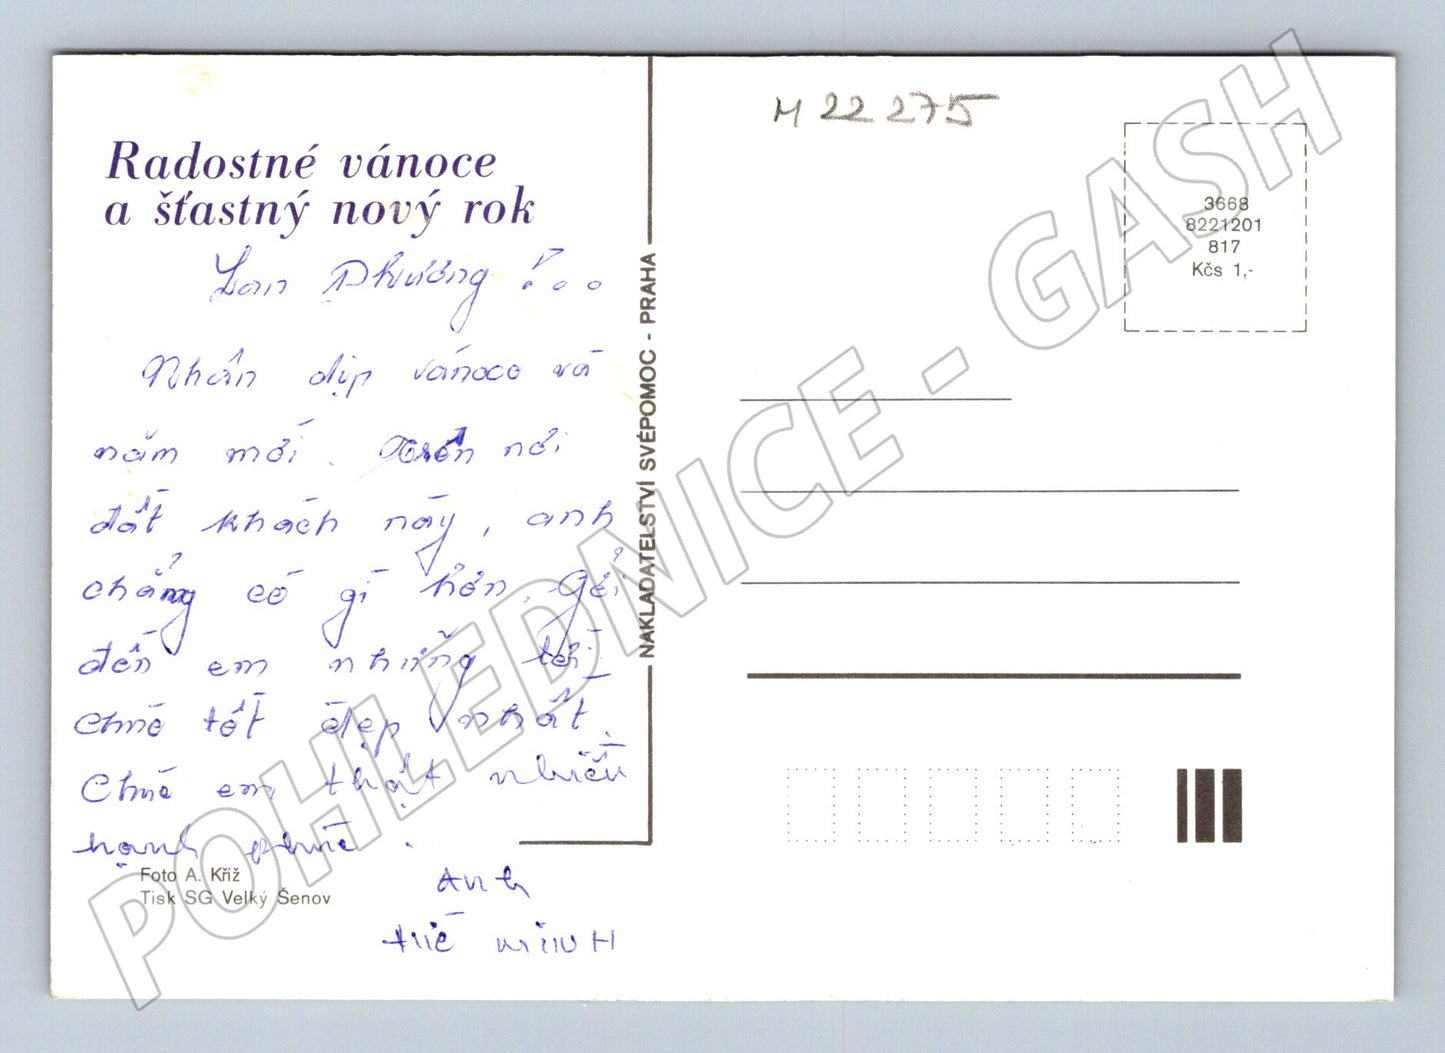 Radostné vánoce
a šťastný nový rok
Lan Phương !..
Nhân dịp vánoce và
năm mới. Trên nơi
đất khách này, anh
chẳng có gì hơn. Gởi
đến em những lời
chúc tốt đẹp nhất.
Chúc em thật nhiều
hạnh phúc.
Anh
M 22 275
3668
8221201
817
Kčs 1,-
NAKLADATELSTVÍ SVÉPOMOC - PRAHA
Foto A. Kříž
Tisk SG Velký Šenov
POHLEDNICE - GASH